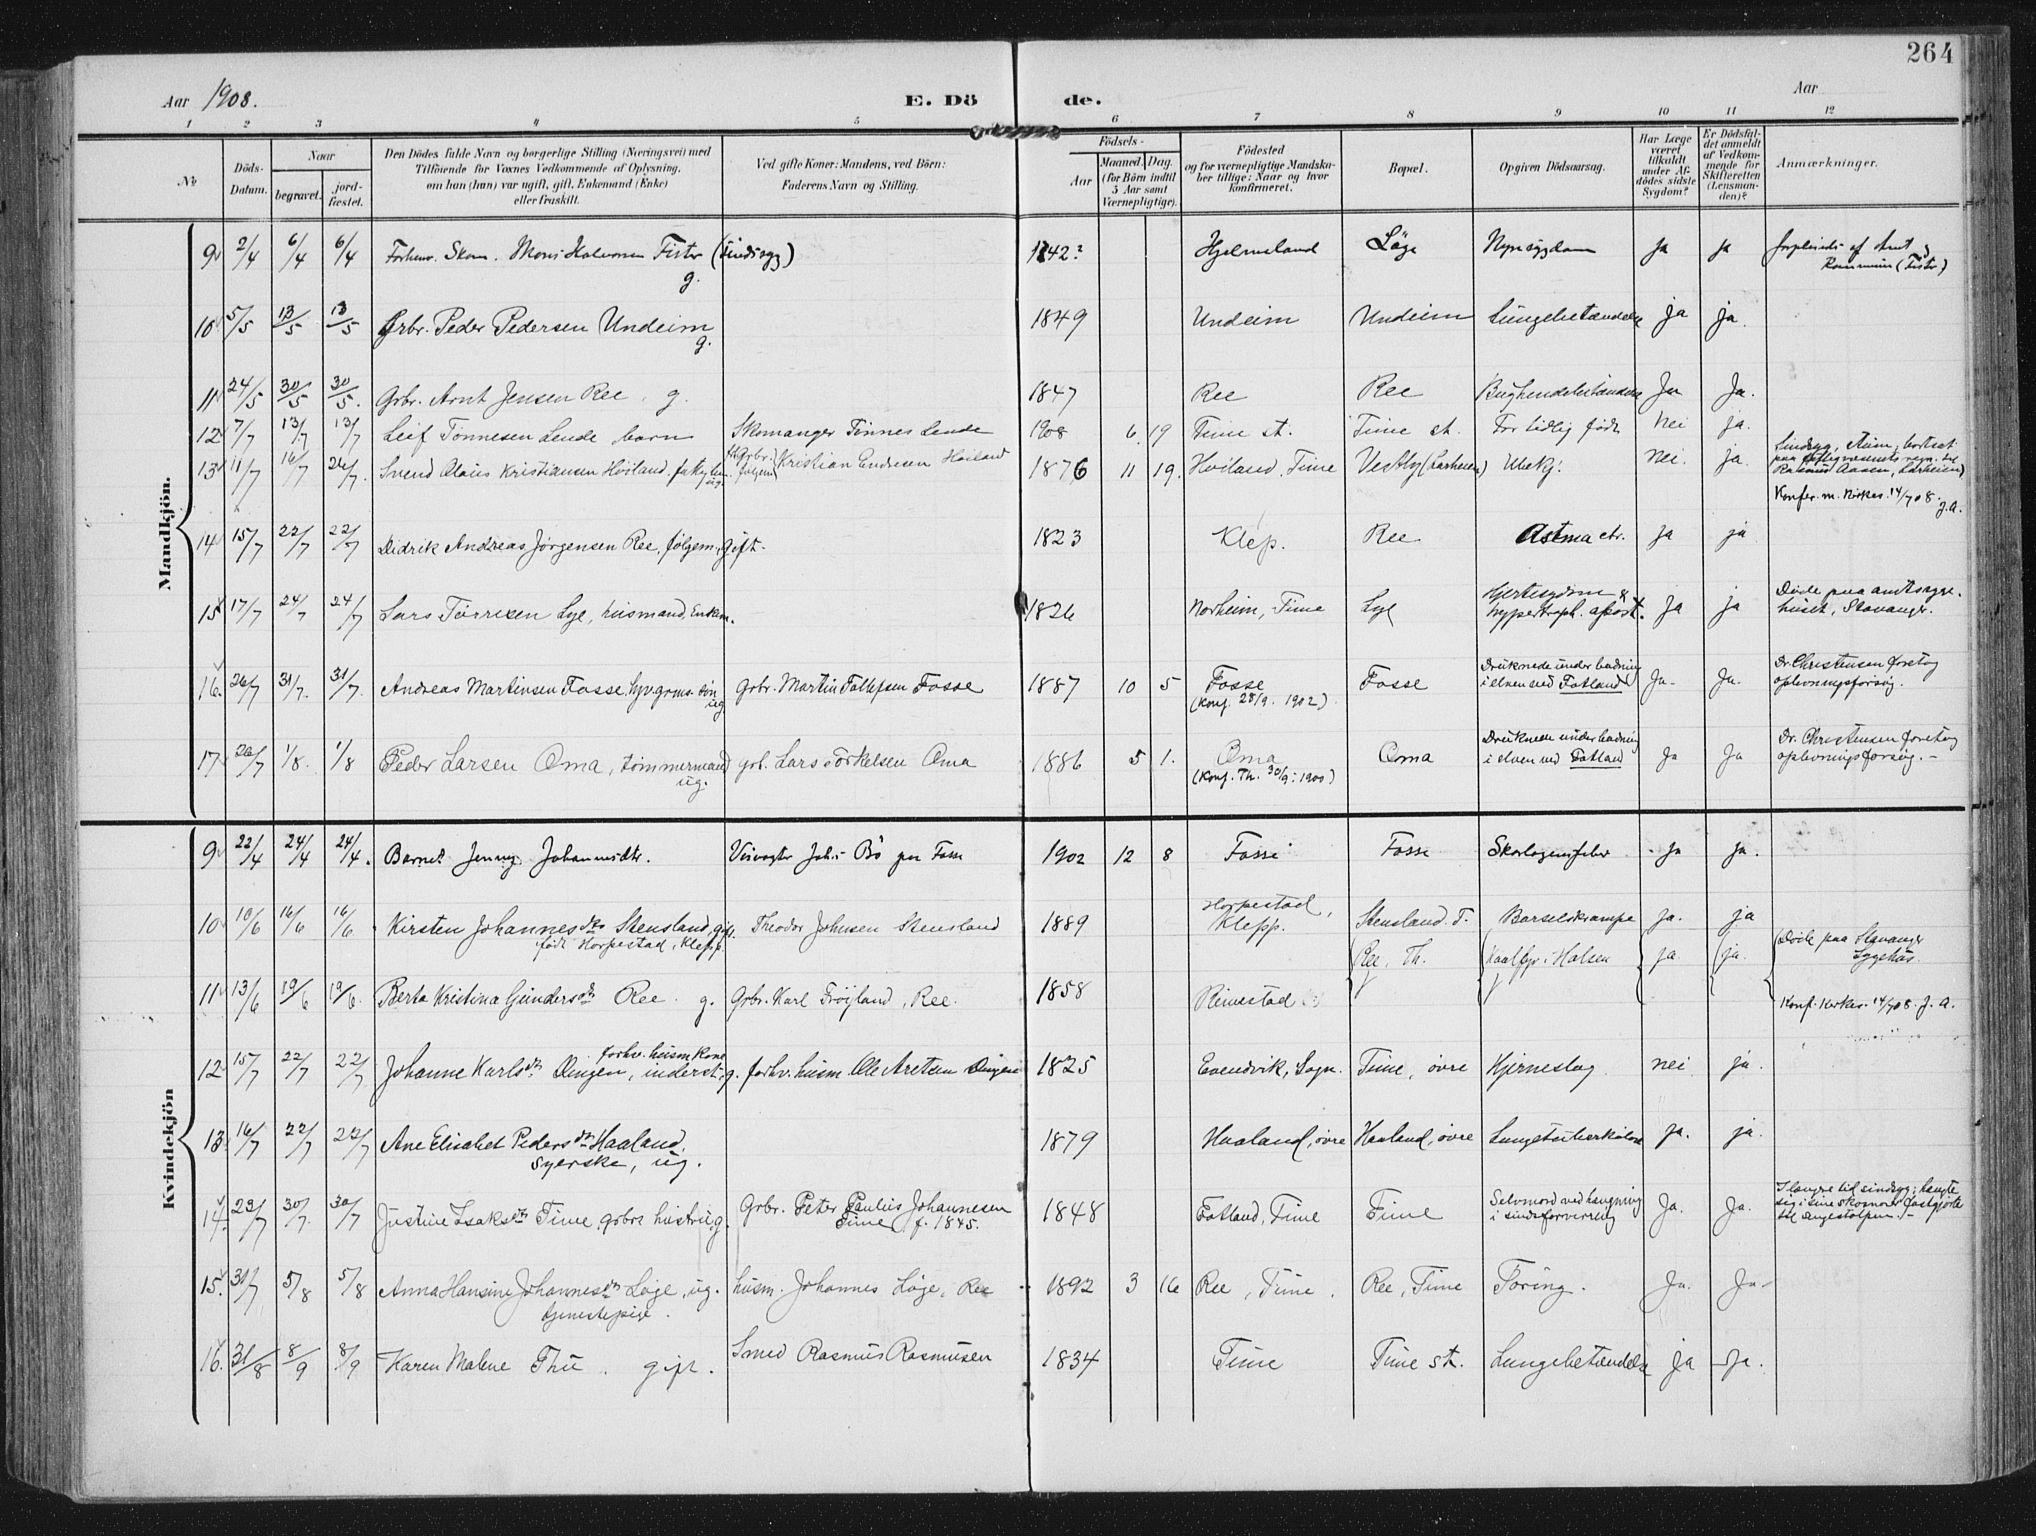 264
Aar 1908.
E. Dö de.
Aar
1 2 3 4 5 6 7 8 9 10 11 12
№
Döds-Datum.
Naar
begravet.
jord-fæstet.
Den Dödes fulde Navn og borgerlige Stilling (Næringsvei) med
Tilföiende for Voxnes Vedkommende af Oplysning,
om han (hun) var ugift, gift, Enkemand (Enke)
eller fraskilt.
Ved gifte Koner: Mandens, ved Börn:
Faderens Navn og Stilling.
Födsels-
Aar
Maaned. Dag.
(for Börn indtil
5 Aar samt
Værnepligtige).
Födested
og for værnepligtige Mandska-
ber tillige: Naar og hvor
konfirmeret.
Bopæl.
Opgiven Dödsaarsag.
Har Læge
været
tilkaldt
under Af-
dödes sidste
Sygdom?
Er Dödsfal-
det anmeldt
af Vedkom-
mende for
Skifteretten
(Lensman-
den)?
Anmærkninger.
Mandkjön.
9 2/4 6/4 6/4 Forhenv. Skom. Mons Halvorsen Fister (Sindssyg) g. 1842? Hjelmeland Löge Nyresygdom ja ja forpleiedes af Amt og Kommunen (Fister)
10 5/5 13/5 13/5 Grbr. Peder Pedersen Undeim g. 1849 Undeim Undeim Lungebetændelse ja ja.
11 24/5 30/5 30/5. Grbr. Arnt Jensen Ree. g. 1847 Ree Ree Bughindebetændelse Ja Ja.
12 7/7 13/7 13/7 Leif Tönnesen Lende barn Skomager Tönnes Lende 1908 6 19 Time st. Time st. For tidlig född nei ja.
13 11/7 16/7 26/7. Svend Olaus Kristiansen Höiland, ug. Kristian Endresen Höiland 1876 11 19. Höiland, Time Vestly (Larheien) Ubekj. nei. ja. Sindssyg, Rasmus Aasen, Larheien)
Konfer. m. Kirkes. 14/7 08. J.A.
14 15/7 22/7 22/7 Didrik Andreas Jørgensen Ree, følgem., gift. 1823 Klep. Ree Astma etc. ja ja
15 17/7 24/7 24/7 Lars Tørresen Lye, husmand, Enkem. 1826 Norheim, Time Lye Hjertesygdom & hypertroph. ja ja Døde paa amtssyge-
huset, Stavanger.
16. 26/7 31/7. 31/7. Andreas Martinsen Fosse, søn ug. Grbr. Martin Tollefsen Fosse 1887 10 5 Fosse
(Konf. 28/9. 1902) Fosse Druknede under badning
i elven ved Fotland Ja. Ja. Dr. Christensen foretog
oplivningsforsøg.
17. 26/7 1/8. 1/8 Peder Larsen Oma, tømmermand ug. grb. Lars Torkelsen Oma 1886 5 1. Oma
(Konf. Th. 30/9. 1900) Oma Druknede under badning
i elven ved Fotland Ja Ja Dr. Christensen foretog
oplivningsforsøg.–
Kvindekjön
9 22/4 24/4 24/4. Barnet Jenny Johannesdtr. Johs Bö paa Fosse 1902 12 8 Fosse Fosse Skarlagensfeber ja ja.
10 10/6 16/6 16/6 Kirsten Johannesdtr Stensland, gift.
født Horpestad, Klepp. Theodor Johnsen Stensland 1889 Horpestad,
Klepp. Stensland. T. Barselskrampe ja. ja
11 13/6 19/6 19/6. Berta Kristina Gundersdtr Ree. g. Grbr. Karl Frøyland, Ree. 1858 Rimestad Ree, Th. i Halsen ja. ja. (Døde paa Stavanger Sygehus.
Konf. Kirkes. 14/7 08. J.A.
12 15/7 22/7 22/7 Johanne Karlsdtr Dingen, forhv. husm.kone inderst, g. forhv. husm. Ole Aretsen Dingen 1825 Evendvik, Sogn. Time, øvre Hjerneslag nei ja.
13. 16/7 22/7 22/7 Ane Elisabet Pedersdtr Haaland,
Syerske, ug. 1879 Haaland, øvre Haaland, øvre Lungetuberkulose ja. ja.
14. 23/7 30/7. 30/7 Justine Isaksdtr Time, grbrs hustru g. Grbr. Peter Paulius Johannesen
Time f. 1845. 1848 Fotland, Time Time Selvmord ved hængning
i sindsforvirring Ja. Ja. I længre tid sindssyg; hængte
sig i sine skoremer fastgjorte
til sengestolpen.–
15. 31/7 5/8 5/8 Anna Hansine Johannesdtr Löge, ug.
tjenestepige. husm. Johannes Löge, Ree 1892 3 16 Ree, Time. Ree, Time Tæring. Ja. Ja.
16. 31/8 8/9 8/9 Karen Malene Thu. gift. Smed Rasmus Rasmusen 1834 Time Time st. Lungebetændelse ja ja.